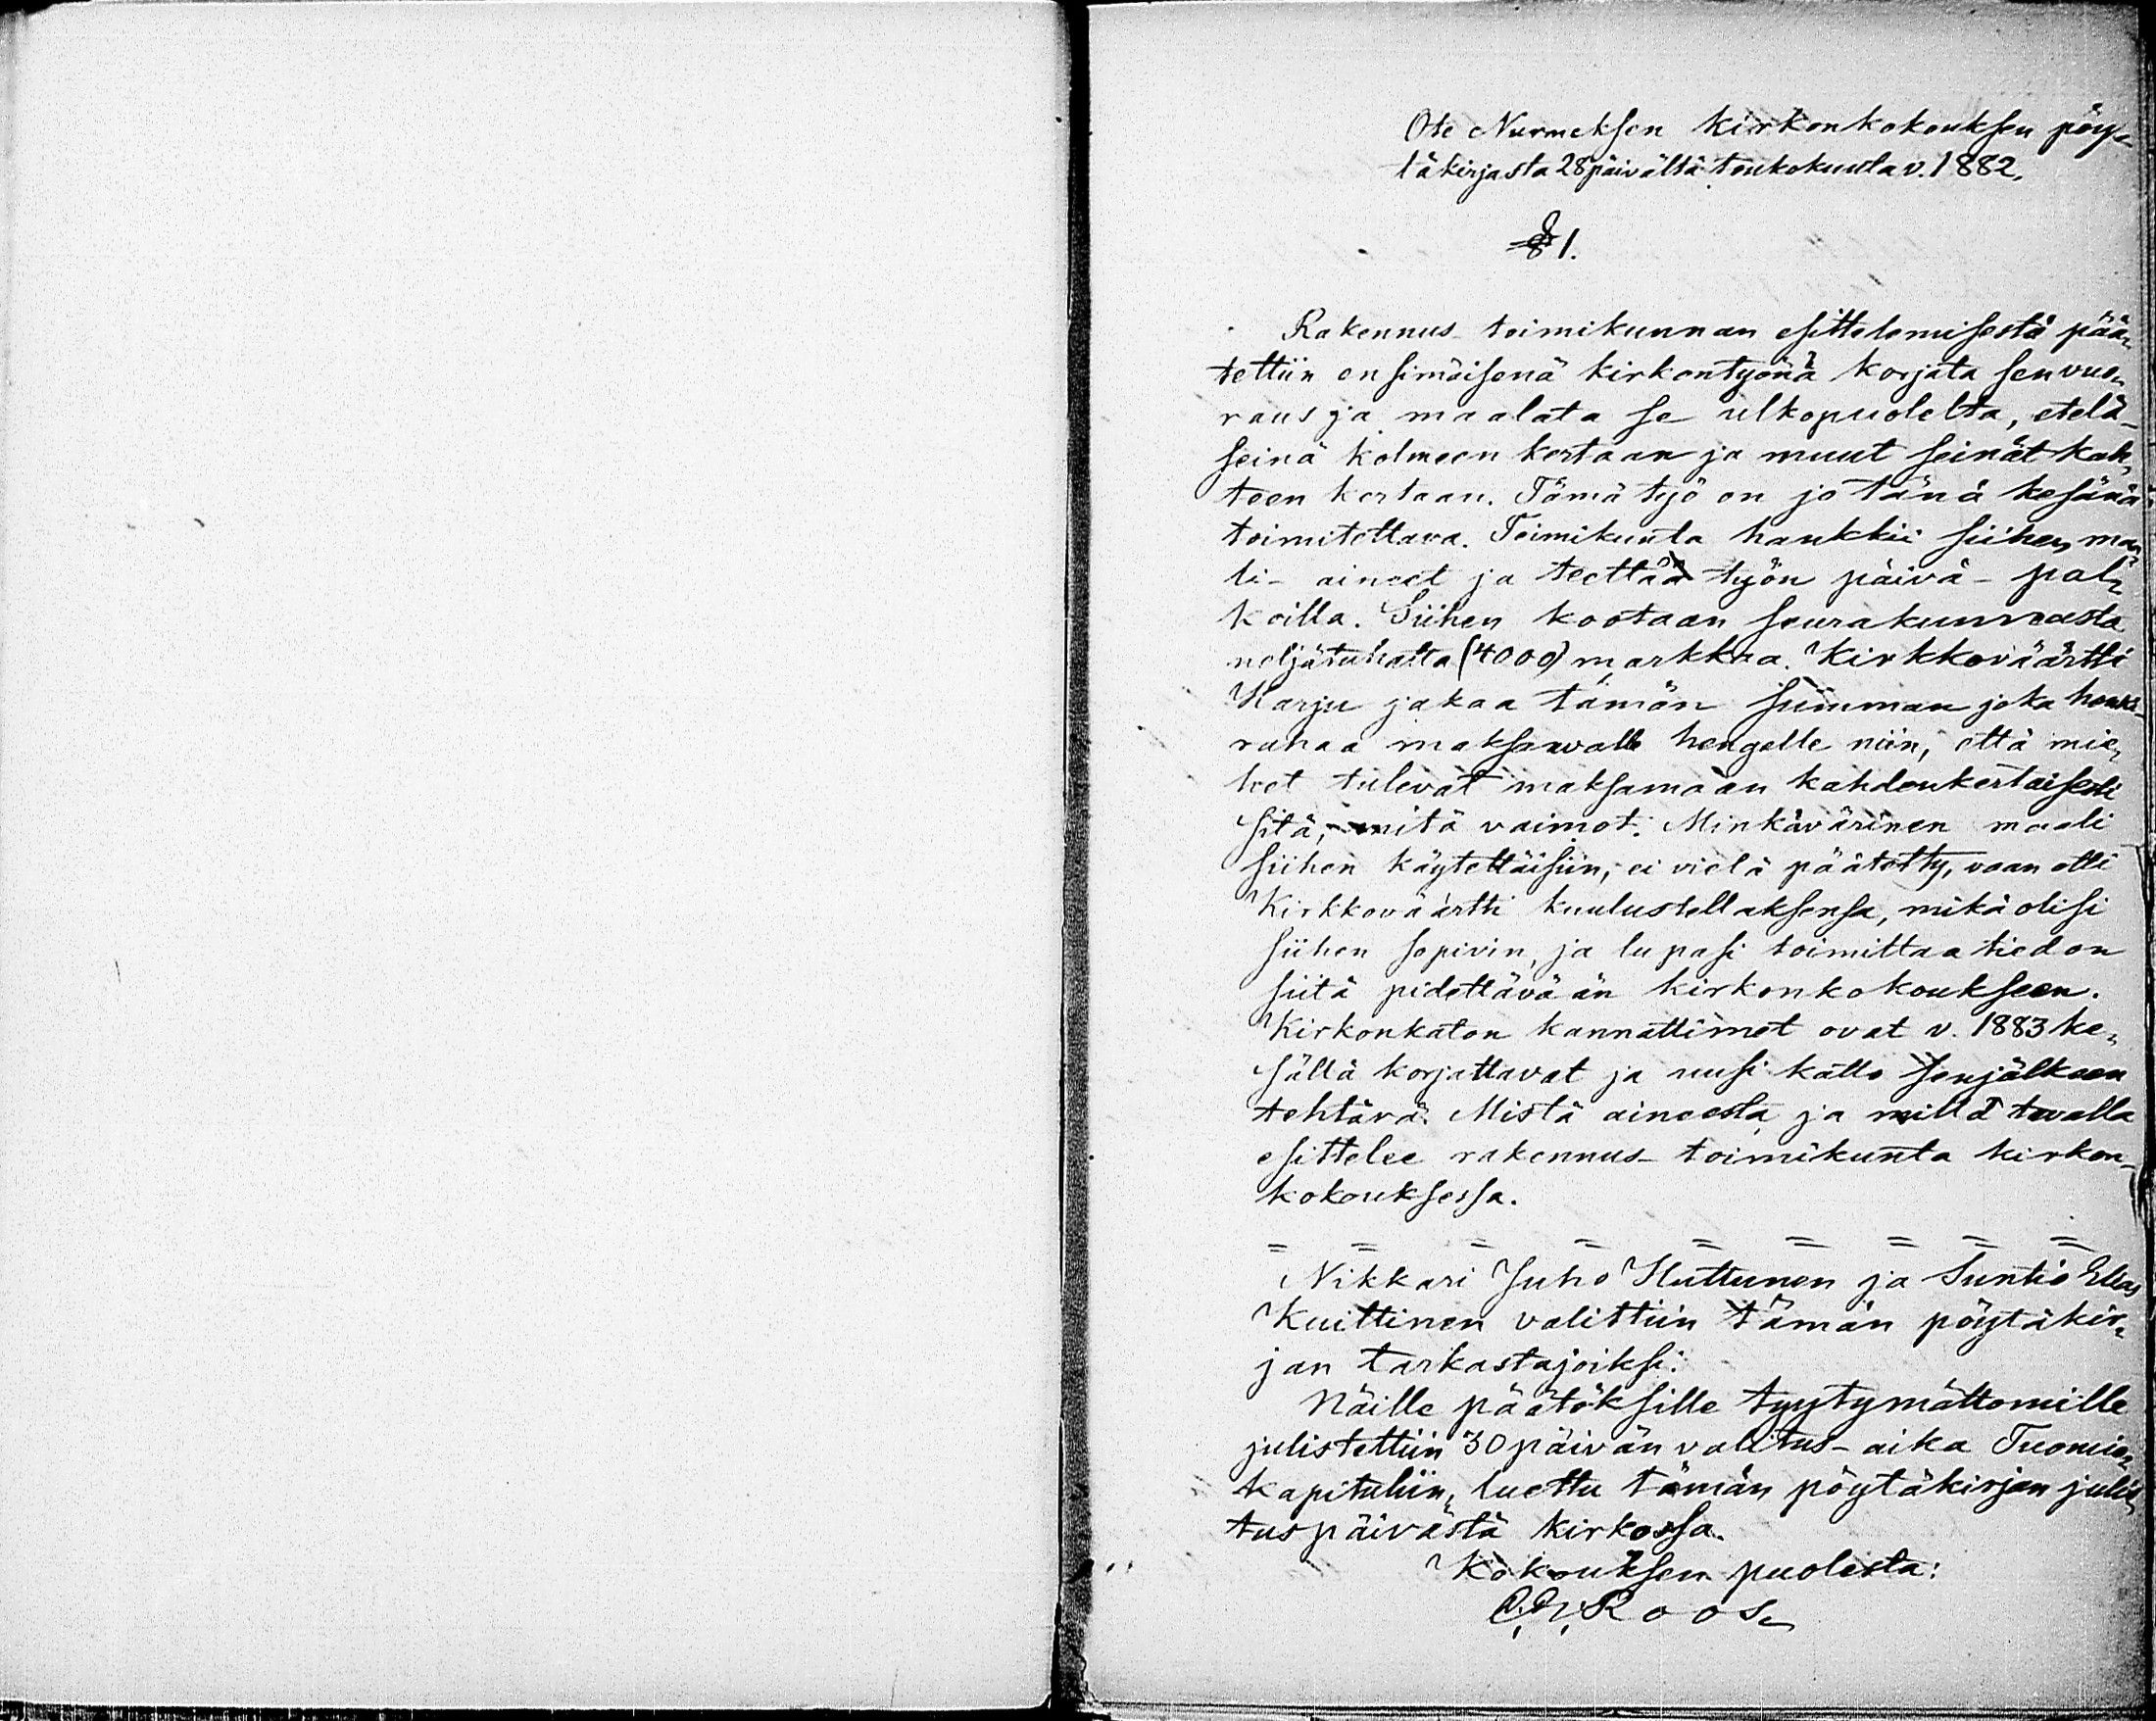 Ote Nurmeksen kirkonkokouksen pöy-
täkirjasta 28 päivältä toukokuuta v. 1882.
§ 1.
Rakennus-toimikunnan esittelemisestä pää-
tettiin ensimäisenä kirkontyönä korjata sen vuo-
raus ja maalata se ulkopuolelta, etelä-
seinä kolmeen kertaan ja muut seinät kah-
teen kertaan. Tämä työ on jo tänä kesänä
toimitettava. Toimikunta hankkii siihen maa-
li-aineet ja teettää työn päivä-pal-
koilla. Siihen kootaan seurakunnasta
neljätuhatta (4000) markkaa. Kirkkoväärtti
Harju jakaa tämän summan joka henki-
rahaa maksavalle hengelle niin, että mie-
het tulevat maksamaan kahdenkertaisesti
sitä, mitä vaimot. Minkävärinen maali
siihen käytettäisiin, ei vielä päätetty, vaan otti
Kirkkoväärtti kuulustellaksensa, mikä olisi
siihen sopivin, ja lupasi toimittaa tiedon
siitä pidettävään kirkonkokoukseen.
Kirkonkaton kannattimet ovat v. 1883 ke-
sällä korjattavat ja uusi katto senjälkeen
tehtävä. Mistä aineesta ja millä tavalla
esittelee rakennus-toimikunta kirkon-
kokouksessa.
= = = = = = = = =
Nikkari Juho Huttunen ja Suntio Elias
Kuittinen valittiin tämän pöytäkir-
jan tarkastajoiksi.
Näille päätöksille tyytymättömille
julistettiin 30 päivän valitus-aika Tuomio-
kapituliin, luettu tämän pöytäkirjan julis-
tuspäivästä kirkossa.
Kokouksen puolesta:
Roos